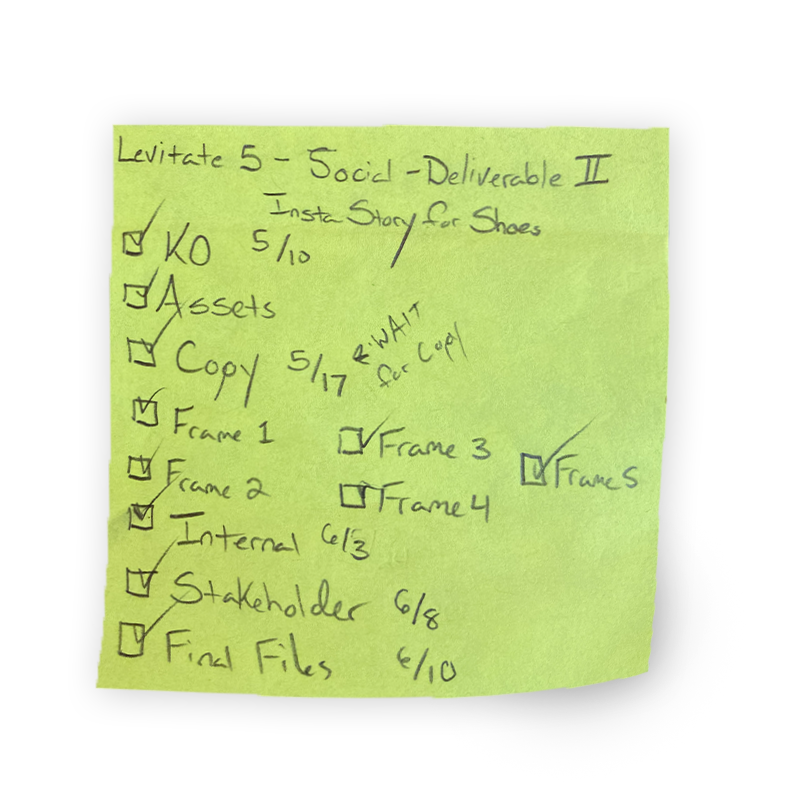 Levitate 5 - Social - Deliverable II
Insta Story for Shoes
KO 5/10
Assets
Copy 5/17 ← WAIT
for Copy
Frame 1
Frame 2
Frame 3
Frame 4
Frame 5
Internal 6/3
Stakeholder 6/8
Final Files 6/10